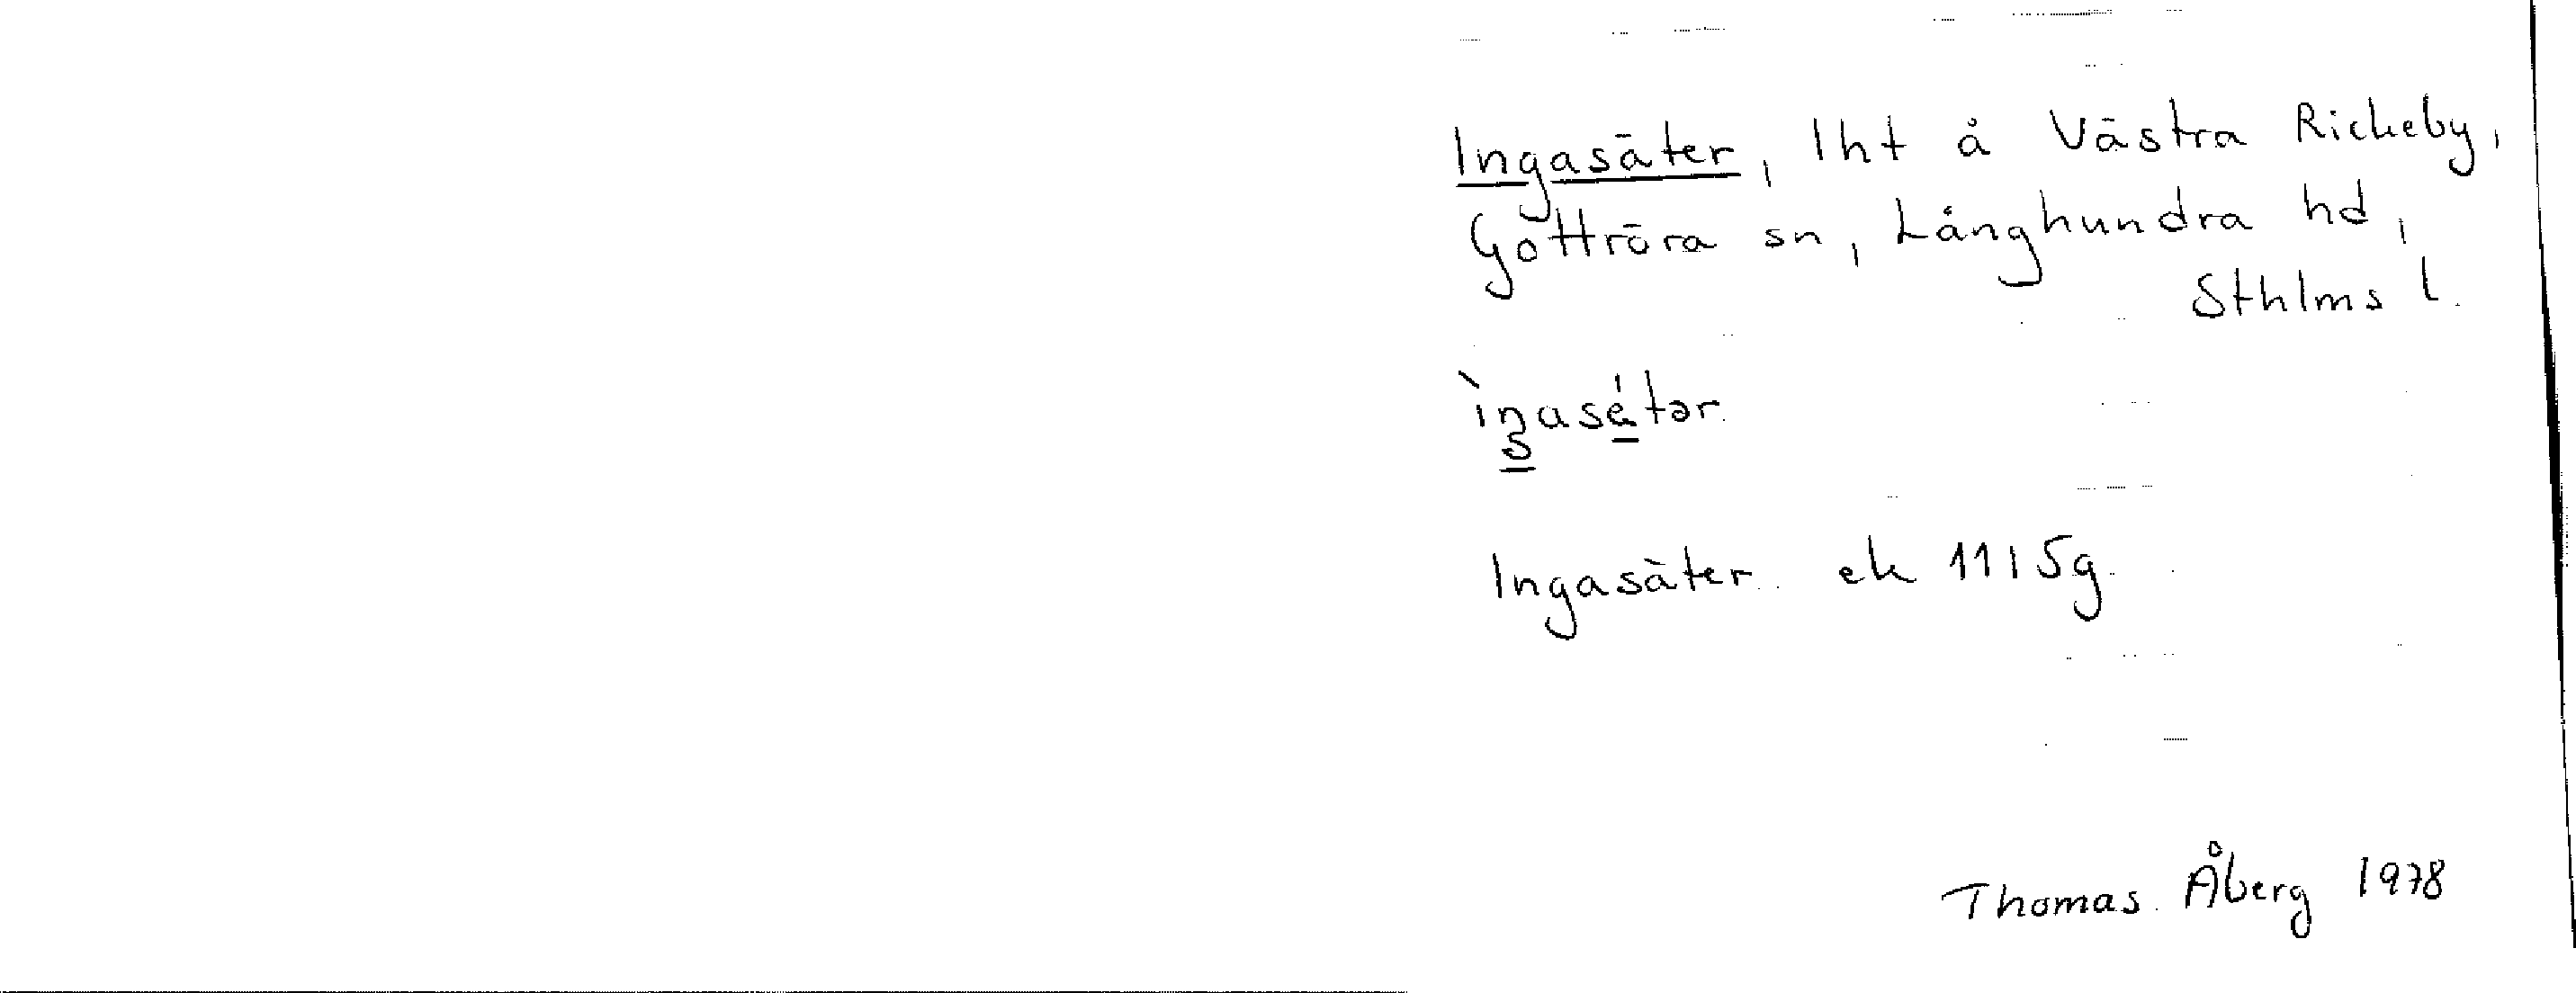 Ingasäter, lht å Västra Rickeby,
Gottröra sn, Långhundra hd,
Sthlms l.
Ingasäter ek 11I5g
Thomas Åberg 1978